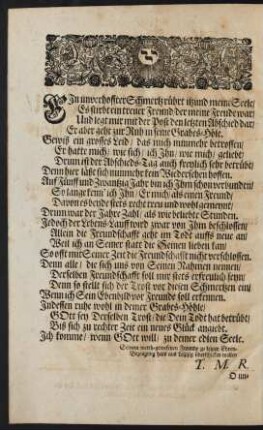 EIn unverhoffter Schmertz rühret itzund meine Seele/
Es stirbt ein treuer Freund/ der meine Freude war/
Und legt mir mit der Post den letzten Abschied dar/
Er aber geht zur Ruh in seine Grabes-Höle.
Gewiß ein grosses Leid/ das mich nunmehr betroffen/
Er hatte mich/ wie sich/ ich Ihn/ wie mich/ geliebt/
Drum ist der Abschieds-Tag auch freylich sehr betrübt/
Denn hier läßt sich nunmehr kein Wiedersehen hoffen.
Auff Fünff und Zwantzig Jahr bin ich Ihm schon verbunden/
So lange kenn' ich Ihn/ Er mich als einen Freund/
Davon es beyde stets recht treu und wohl gemeynt/
Drum war der Jahre Zahl/ als wie beliebte Stunden.
Jedoch der Lebens-Lauff wird zwar von Ihm beschlossen/
Allein die Freundschafft geht im Todt auffs neue an/
Weil ich an Seiner statt die Seinen lieben kan/
So offt mit Seiner Zeit die Freundschafft nicht verschlossen.
Denn alle/ die sich uns von Seinen Nahmen nennen/
Derselben Freundschafft soll mir stets erfreulich seyn/
Denn so stellt sich der Trost vor diesen Schmertzen ein/
Wenn ich Sein Ebenbild vor Freunde soll erkennen.
Indessen ruhe wohl in deiner Grabes-Höhle/
GOtt sey Derselben Trost/ die Dein Todt hat betrübt/
Biß sich zu rechter Zeit ein neues Glück angiebt.
Ich komme/ wenn GOtt will/ zu deiner edlen Seele.
T. M. R.
O un-